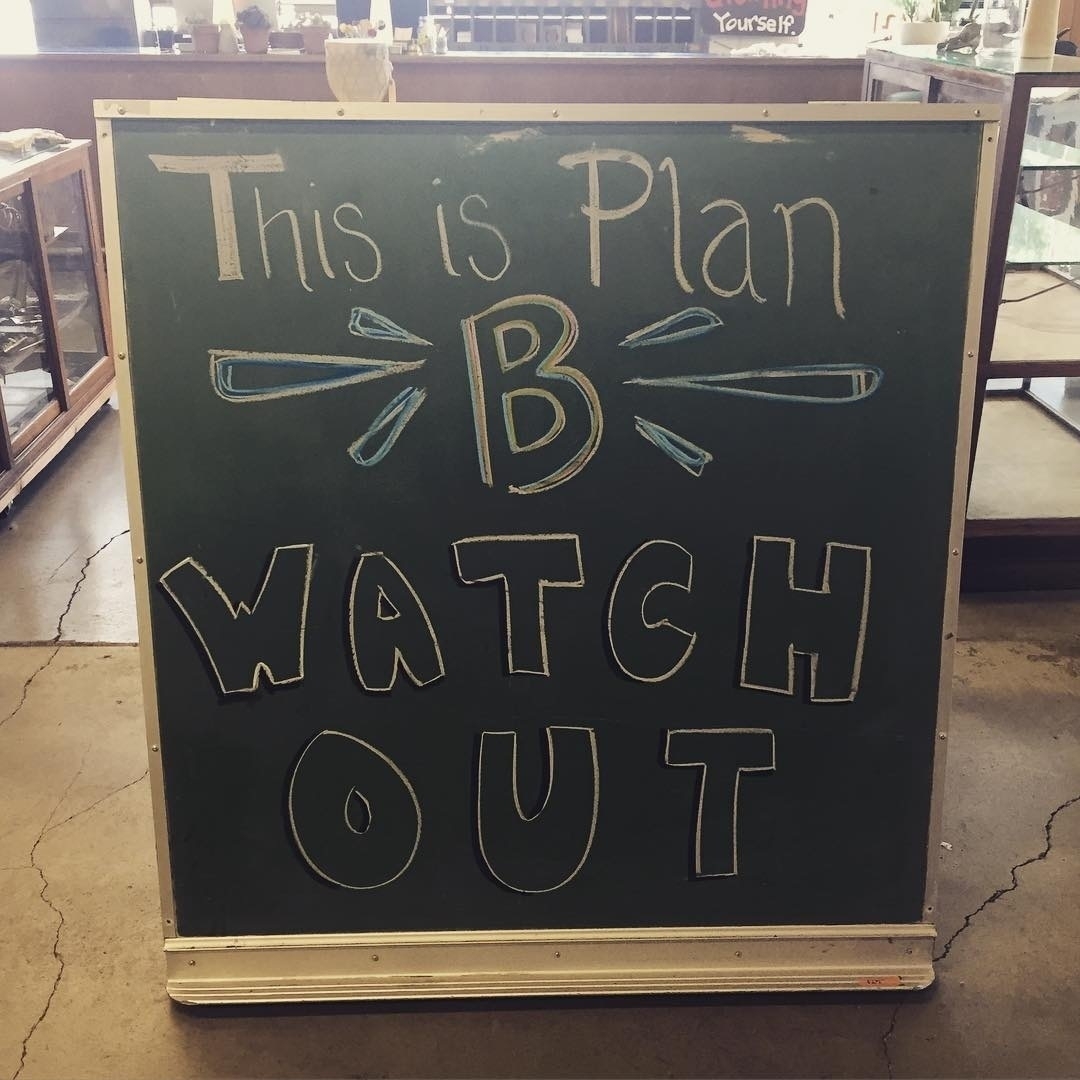 Yourself.
This is Plan
B
WATCH
OUT